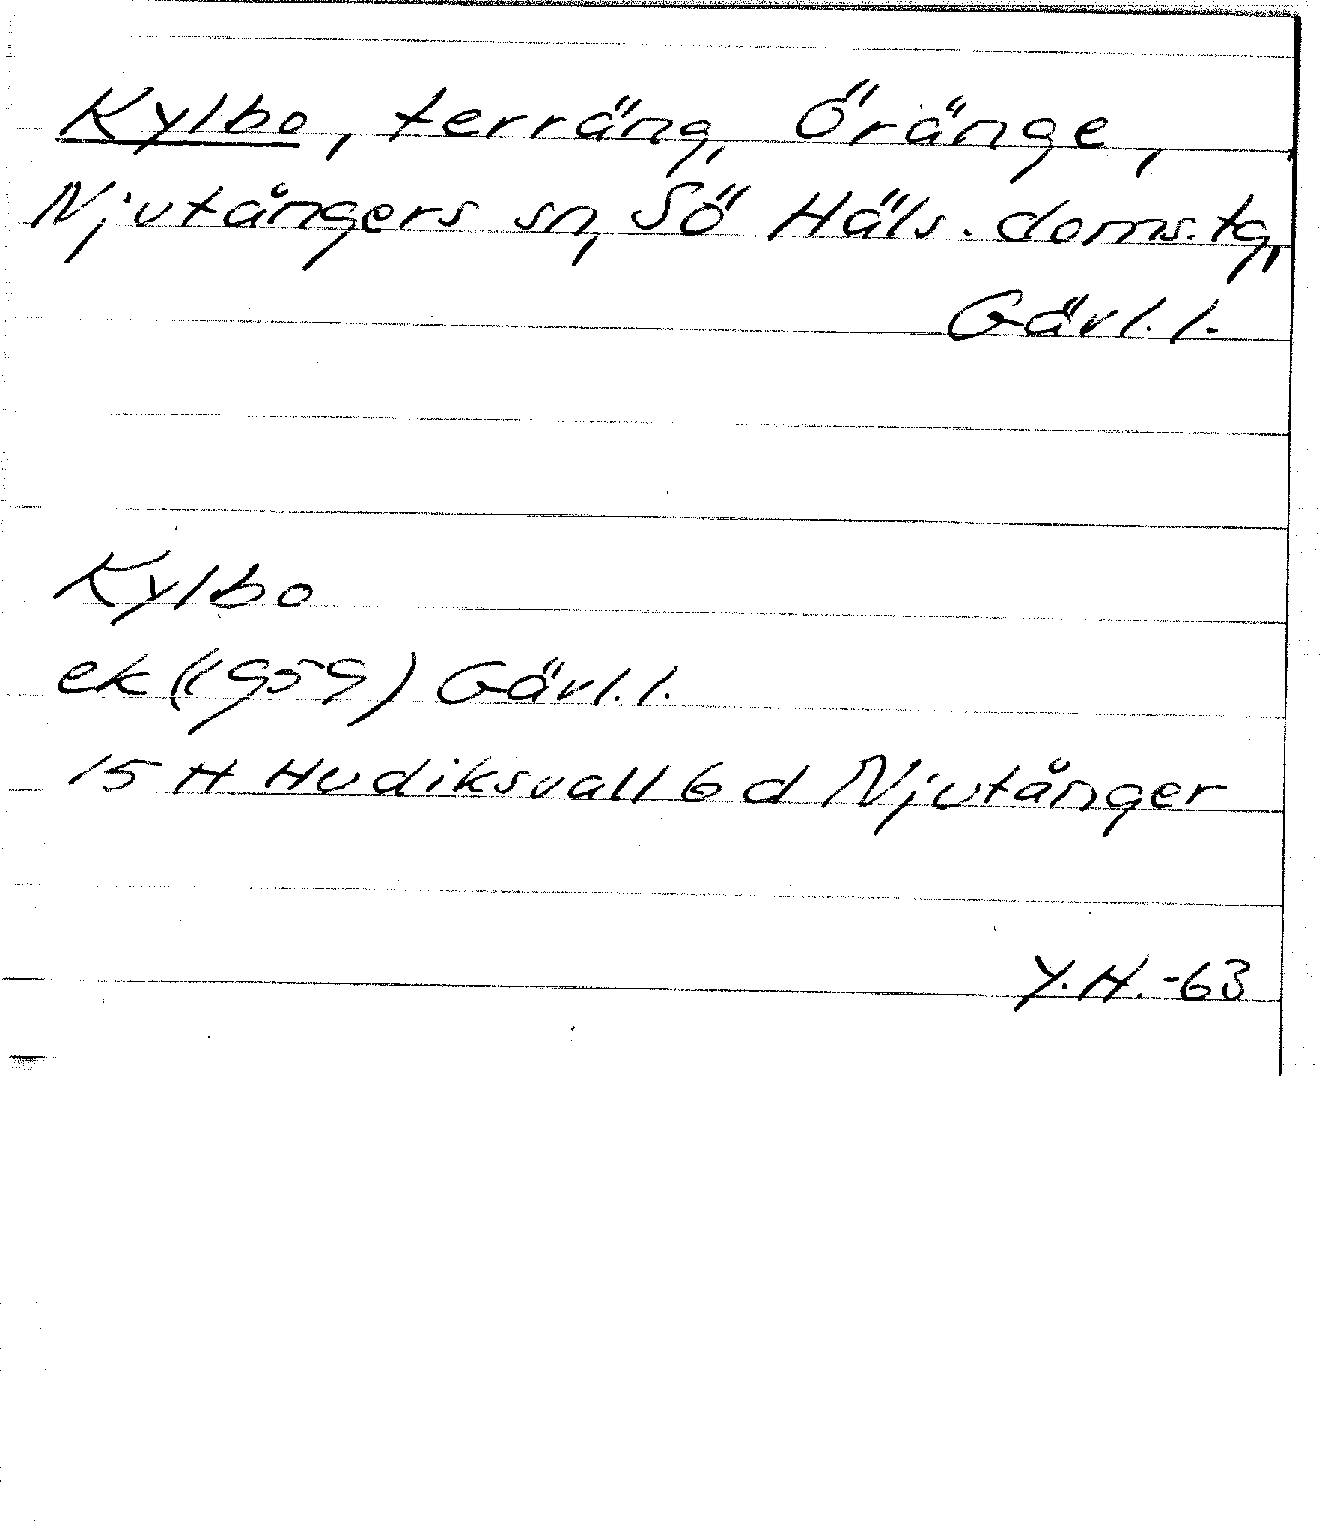 Kylbo, terräng, Öränge,
Njutångers sn, Sö Häls. doms. tg,
Gävl. l.
Kylbo
ek (1959) Gävl. l.
15 H Hudiksvall 6 d Njutånger
Y.H. -63